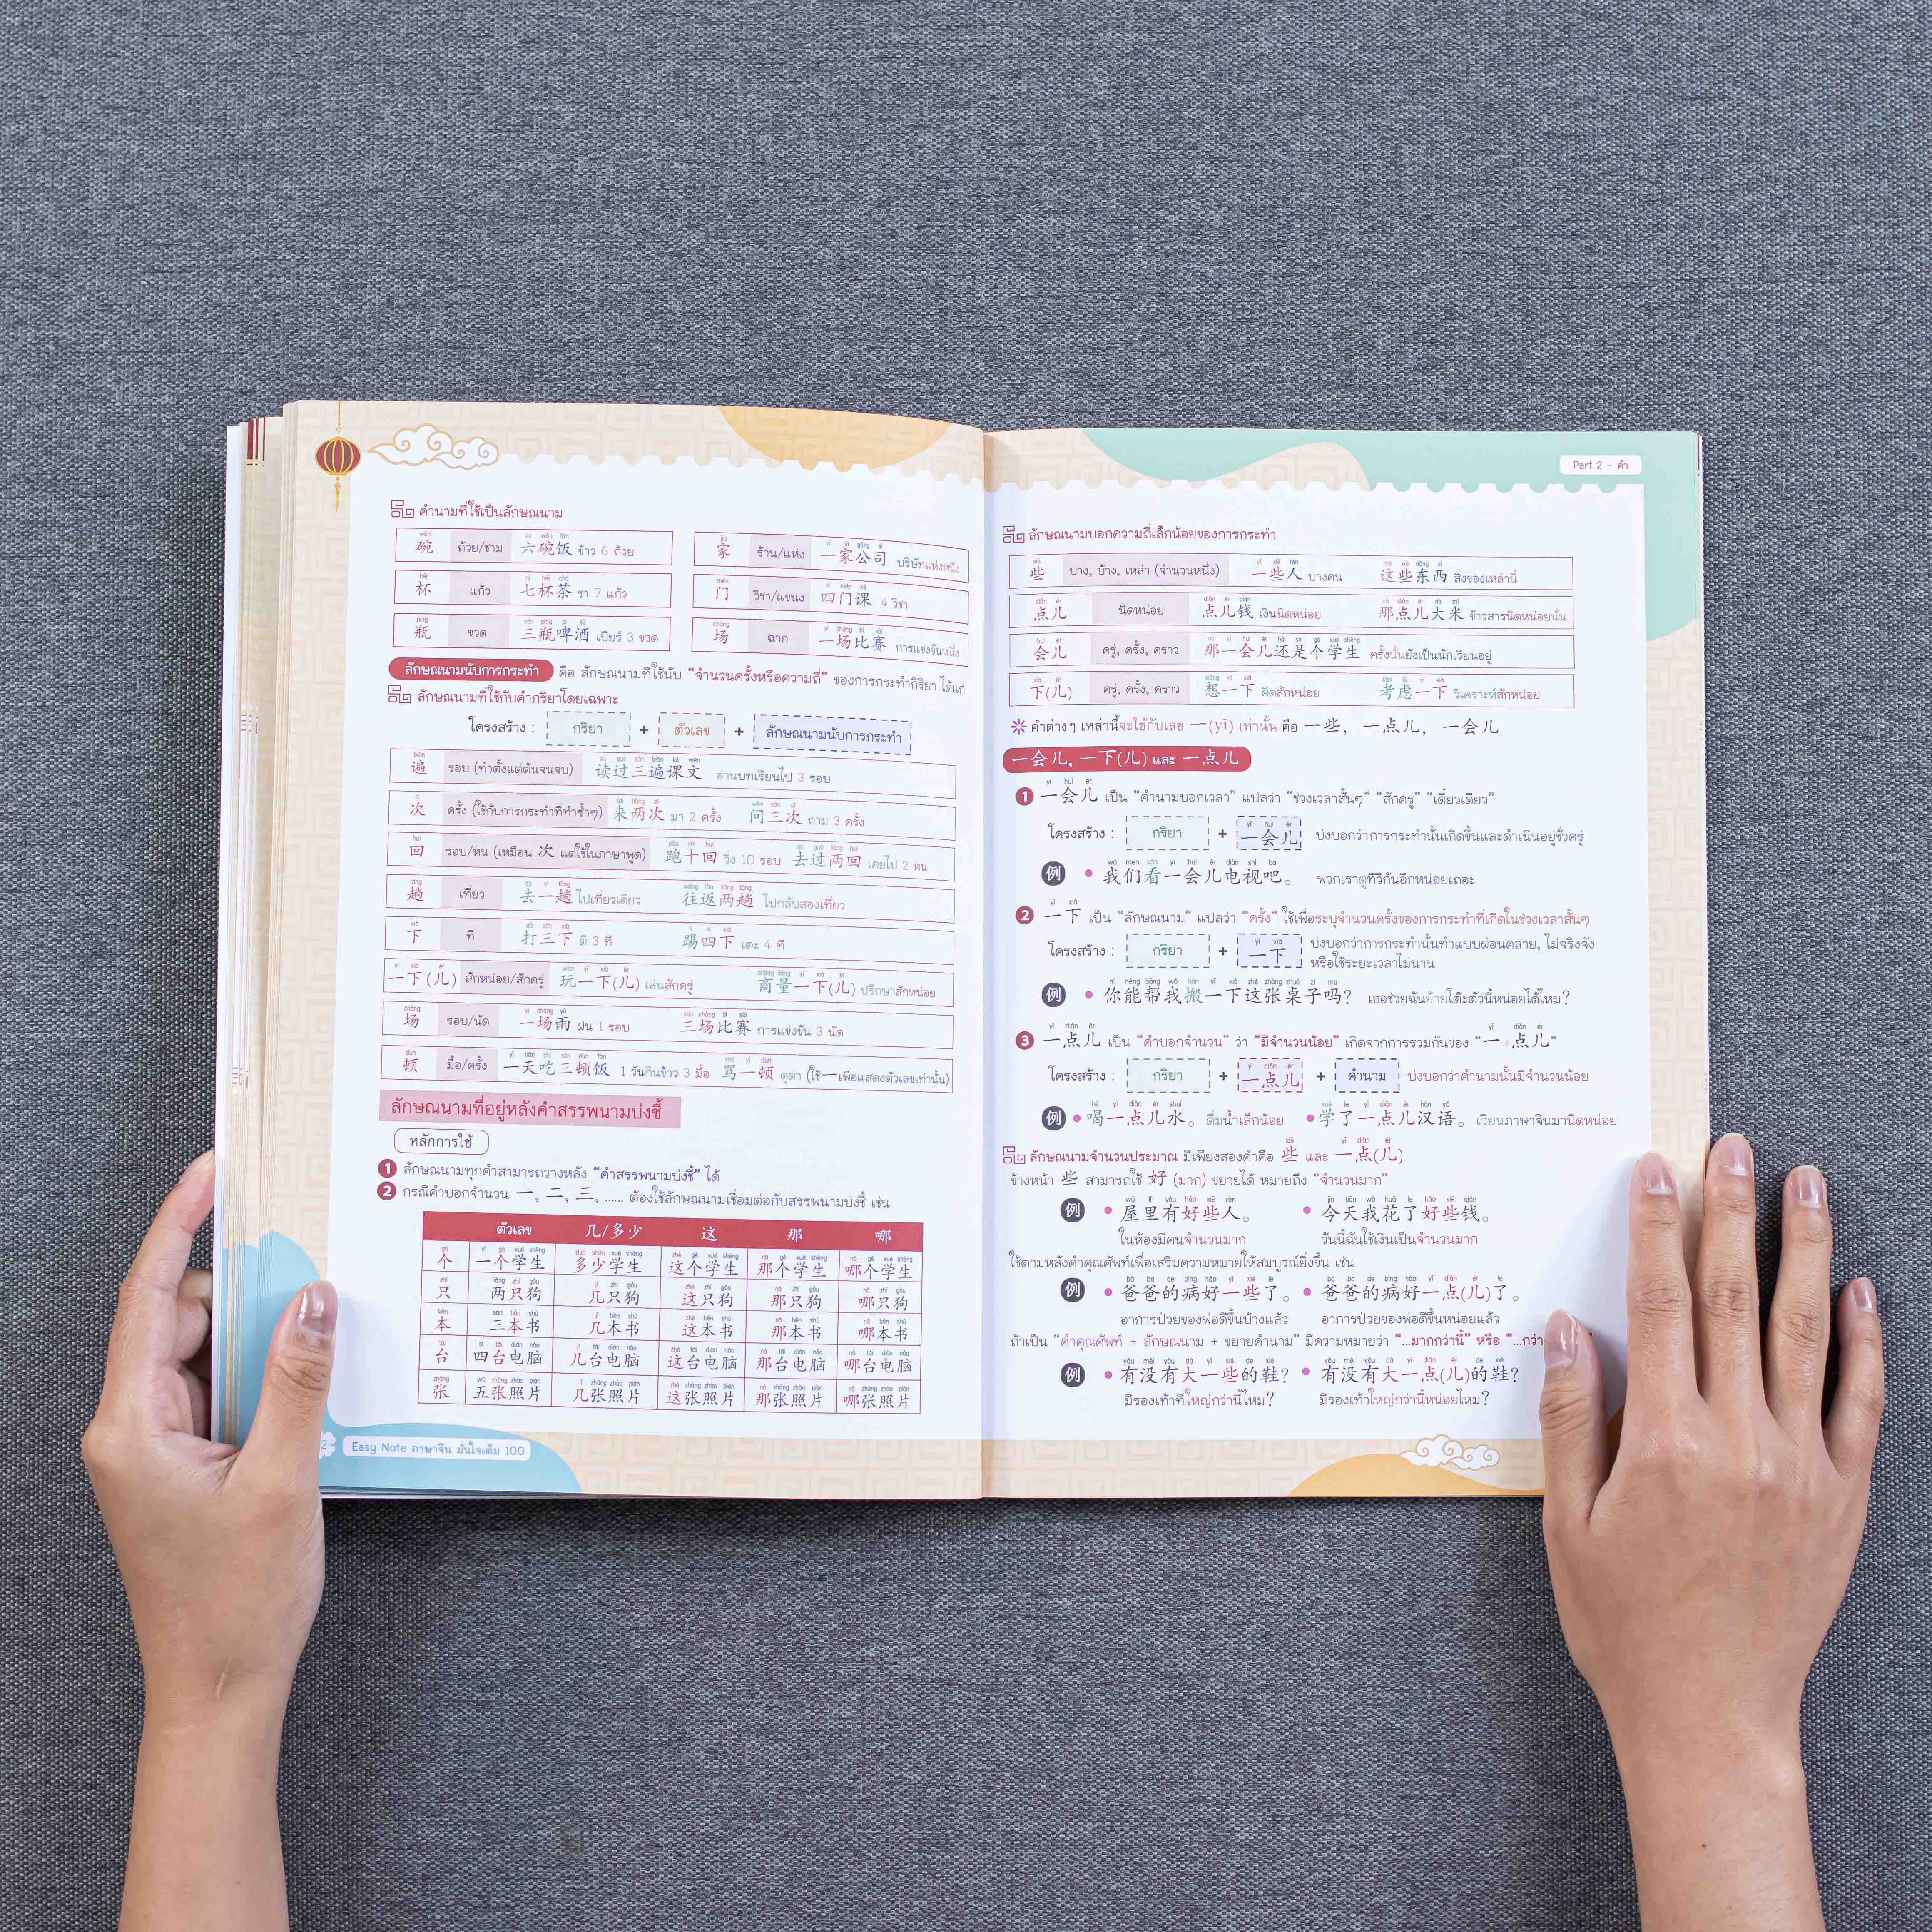 คำนามที่ใช้เป็นลักษณนาม
wǎn
碗 ถ้วย/ชาม 六碗饭 ข้าว 6 ถ้วย
bēi qī bēi chá
杯 แก้ว 七杯茶 ชา 7 แก้ว
píng sān píng pí jiǔ
瓶 ขวด 三瓶啤酒 เบียร์ 3 ขวด
jiā yì jiā gōng sī
家 ร้าน/แห่ง 一家公司 บริษัทแห่งหนึ่ง
mén sì mén kè
门 วิชา/แขนง 四门课 4 วิชา
chǎng yì chǎng bǐ sài
场 ฉาก 一场比赛 การแข่งขันหนึ่ง
ลักษณนามนับการกระทำ คือ ลักษณนามที่ใช้นับ “จำนวนครั้งหรือความถี่” ของการกระทำกิริยา ได้แก่
ลักษณนามที่ใช้กับคำกริยาโดยเฉพาะ
โครงสร้าง : กริยา + ตัวเลข + ลักษณนามนับการกระทำ
biàn dú guò sān biàn kè wén
遍 รอบ (ทำตั้งแต่ต้นจนจบ) 读过三遍课文 อ่านบทเรียนไป 3 รอบ
cì lái liǎng cì wèn sān cì
次 ครั้ง (ใช้กับการกระทำที่ทำซ้ำๆ) 来两次 มา 2 ครั้ง 问三次 ถาม 3 ครั้ง
huí pǎo shí huí qù guò liǎng huí
回 รอบ/หน (เหมือน 次 แต่ใช้ในภาษาพูด) 跑十回 วิ่ง 10 รอบ 去过两回 เคยไป 2 หน
tàng qù yí tàng wǎng fǎn liǎng tàng
趟 เที่ยว 去一趟 ไปเที่ยวเดียว 往返两趟 ไปกลับสองเที่ยว
xià dǎ sān xià tī sì xià
下 ที 打三下 ตี 3 ที 踢四下 เตะ 4 ที
yí xià ér wán yí xià ér shāng liáng yí xià ér
一下(儿) สักหน่อย/สักครู่ 玩一下(儿) เล่นสักครู่ 商量一下(儿) ปรึกษาสักหน่อย
chǎng yì cháng yǔ sān chǎng bǐ sài
场 รอบ/นัด 一场雨 ฝน 1 รอบ 三场比赛 การแข่งขัน 3 นัด
dùn yì tiān chī sān dùn fàn mà yí dùn
顿 มื้อ/ครั้ง 一天吃三顿饭 1 วันกินข้าว 3 มื้อ 骂一顿 ดุด่า (ใช้一เพื่อแสดงตัวเลขเท่านั้น)
ลักษณนามที่อยู่หลังคำสรรพนามบ่งชี้
หลักการใช้
1 ลักษณนามทุกคำสามารถวางหลัง “คำสรรพนามบ่งชี้” ได้
2 กรณีคำบอกจำนวน 一, 二, 三, ...... ต้องใช้ลักษณนามเชื่อมต่อกับสรรพนามบ่งชี้ เช่น
ตัวเลข 几/多少 这 那 哪
gè yí gè xué shēng duō shǎo xué shēng zhè gè xué shēng nà gè xué shēng nǎ gè xué shēng
个 一个学生 多少学生 这个学生 那个学生 哪个学生
zhī liǎng zhī gǒu jǐ zhī gǒu zhè zhī gǒu nà zhī gǒu nǎ zhī gǒu
只 两只狗 几只狗 这只狗 那只狗 哪只狗
běn sān běn shū jǐ běn shū zhè běn shū nà běn shū nǎ běn shū
本 三本书 几本书 这本书 那本书 哪本书
tái sì tái diàn nǎo jǐ tái diàn nǎo zhè tái diàn nǎo nà tái diàn nǎo nǎ tái diàn nǎo
台 四台电脑 几台电脑 这台电脑 那台电脑 哪台电脑
zhāng wǔ zhāng zhào piàn jǐ zhāng zhào piàn zhè zhāng zhào piàn nà zhāng zhào piàn nǎ zhāng zhào piàn
张 五张照片 几张照片 这张照片 那张照片 哪张照片
2 Easy Note ภาษาจีน มั่นใจเต็ม 100
Part 2 – คำ
ลักษณนามบอกความถี่เล็กน้อยของการกระทำ
xiē yì xiē rén zhè xiē dōng xi
些 บาง, บ้าง, เหล่า (จำนวนหนึ่ง) 一些人 บางคน 这些东西 สิ่งของเหล่านี้
diǎn ér diǎn ér qián nà diǎn ér dà mǐ
点儿 นิดหน่อย 点儿钱 เงินนิดหน่อย 那点儿大米 ข้าวสารนิดหน่อยนั่น
huì ér nà yí huì ér hái shì gè xué shēng
会儿 ครู่, ครั้ง, คราว 那一会儿还是个学生 ครั้งนั้นยังเป็นนักเรียนอยู่
xià ér xiǎng yí xià kǎo lǜ yí xià
下(儿) ครู่, ครั้ง, คราว 想一下 คิดสักหน่อย 考虑一下 วิเคราะห์สักหน่อย
คำต่างๆ เหล่านี้จะใช้กับเลข 一(yī) เท่านั้น คือ 一些, 一点儿, 一会儿
一会儿, 一下(儿) และ 一点儿
yí huì ér
1 一会儿 เป็น “คำนามบอกเวลา” แปลว่า “ช่วงเวลาสั้นๆ” “สักครู่” “เดี๋ยวเดียว”
yí huì ér
โครงสร้าง : กริยา + 一会儿 บ่งบอกว่าการกระทำนั้นเกิดขึ้นและดำเนินอยู่ชั่วครู่
wǒ men kàn yí huì ér diàn shì ba
例 • 我们看一会儿电视吧。 พวกเราดูทีวีกันอีกหน่อยเถอะ
yí xià
2 一下 เป็น “ลักษณนาม” แปลว่า “ครั้ง” ใช้เพื่อระบุจำนวนครั้งของการกระทำที่เกิดในช่วงเวลาสั้นๆ
yí xià
โครงสร้าง : กริยา + 一下 บ่งบอกว่าการกระทำนั้นทำแบบผ่อนคลาย, ไม่จริงจัง
หรือใช้ระยะเวลาไม่นาน
nǐ néng bāng wǒ bān yí xià zhè zhāng zhuō zi ma
例 • 你能帮我搬一下这张桌子吗? เธอช่วยฉันย้ายโต๊ะตัวนี้หน่อยได้ไหม?
yì diǎn ér yì diǎn ér
3 一点儿 เป็น “คำบอกจำนวน” ว่า “มีจำนวนน้อย” เกิดจากการรวมกันของ “一+点儿”
yì diǎn ér
โครงสร้าง : กริยา + 一点儿 + คำนาม บ่งบอกว่าคำนามนั้นมีจำนวนน้อย
hē yì diǎn ér shuǐ xué le yì diǎn ér hàn yǔ
例 • 喝一点儿水。 ดื่มน้ำเล็กน้อย • 学了一点儿汉语。 เรียนภาษาจีนมานิดหน่อย
xiē yì diǎn ér
ลักษณนามจำนวนประมาณ มีเพียงสองคำคือ 些 และ 一点(儿)
ข้างหน้า 些 สามารถใช้ 好 (มาก) ขยายได้ หมายถึง “จำนวนมาก”
wū lǐ yǒu hǎo xiē rén jīn tiān wǒ huā le hǎo xiē qián
例 • 屋里有好些人。 • 今天我花了好些钱。
ในห้องมีคนจำนวนมาก วันนี้ฉันใช้เงินเป็นจำนวนมาก
ใช้ตามหลังคำคุณศัพท์เพื่อเสริมความหมายให้สมบูรณ์ยิ่งขึ้น เช่น
bà ba de bìng hǎo yì xiē le bà ba de bìng hǎo yì diǎn ér le
例 • 爸爸的病好一些了。 • 爸爸的病好一点(儿)了。
อาการป่วยของพ่อดีขึ้นบ้างแล้ว อาการป่วยของพ่อดีขึ้นหน่อยแล้ว
ถ้าเป็น “คำคุณศัพท์ + ลักษณนาม + ขยายคำนาม” มีความหมายว่า “...มากกว่านี้” หรือ “...กว่า
yǒu méi yǒu dà yì xiē de xié yǒu méi yǒu dà yì diǎn ér de xié
例 • 有没有大一些的鞋? • 有没有大一点(儿)的鞋?
มีรองเท้าที่ใหญ่กว่านี้ไหม? มีรองเท้าใหญ่กว่านี้หน่อยไหม?